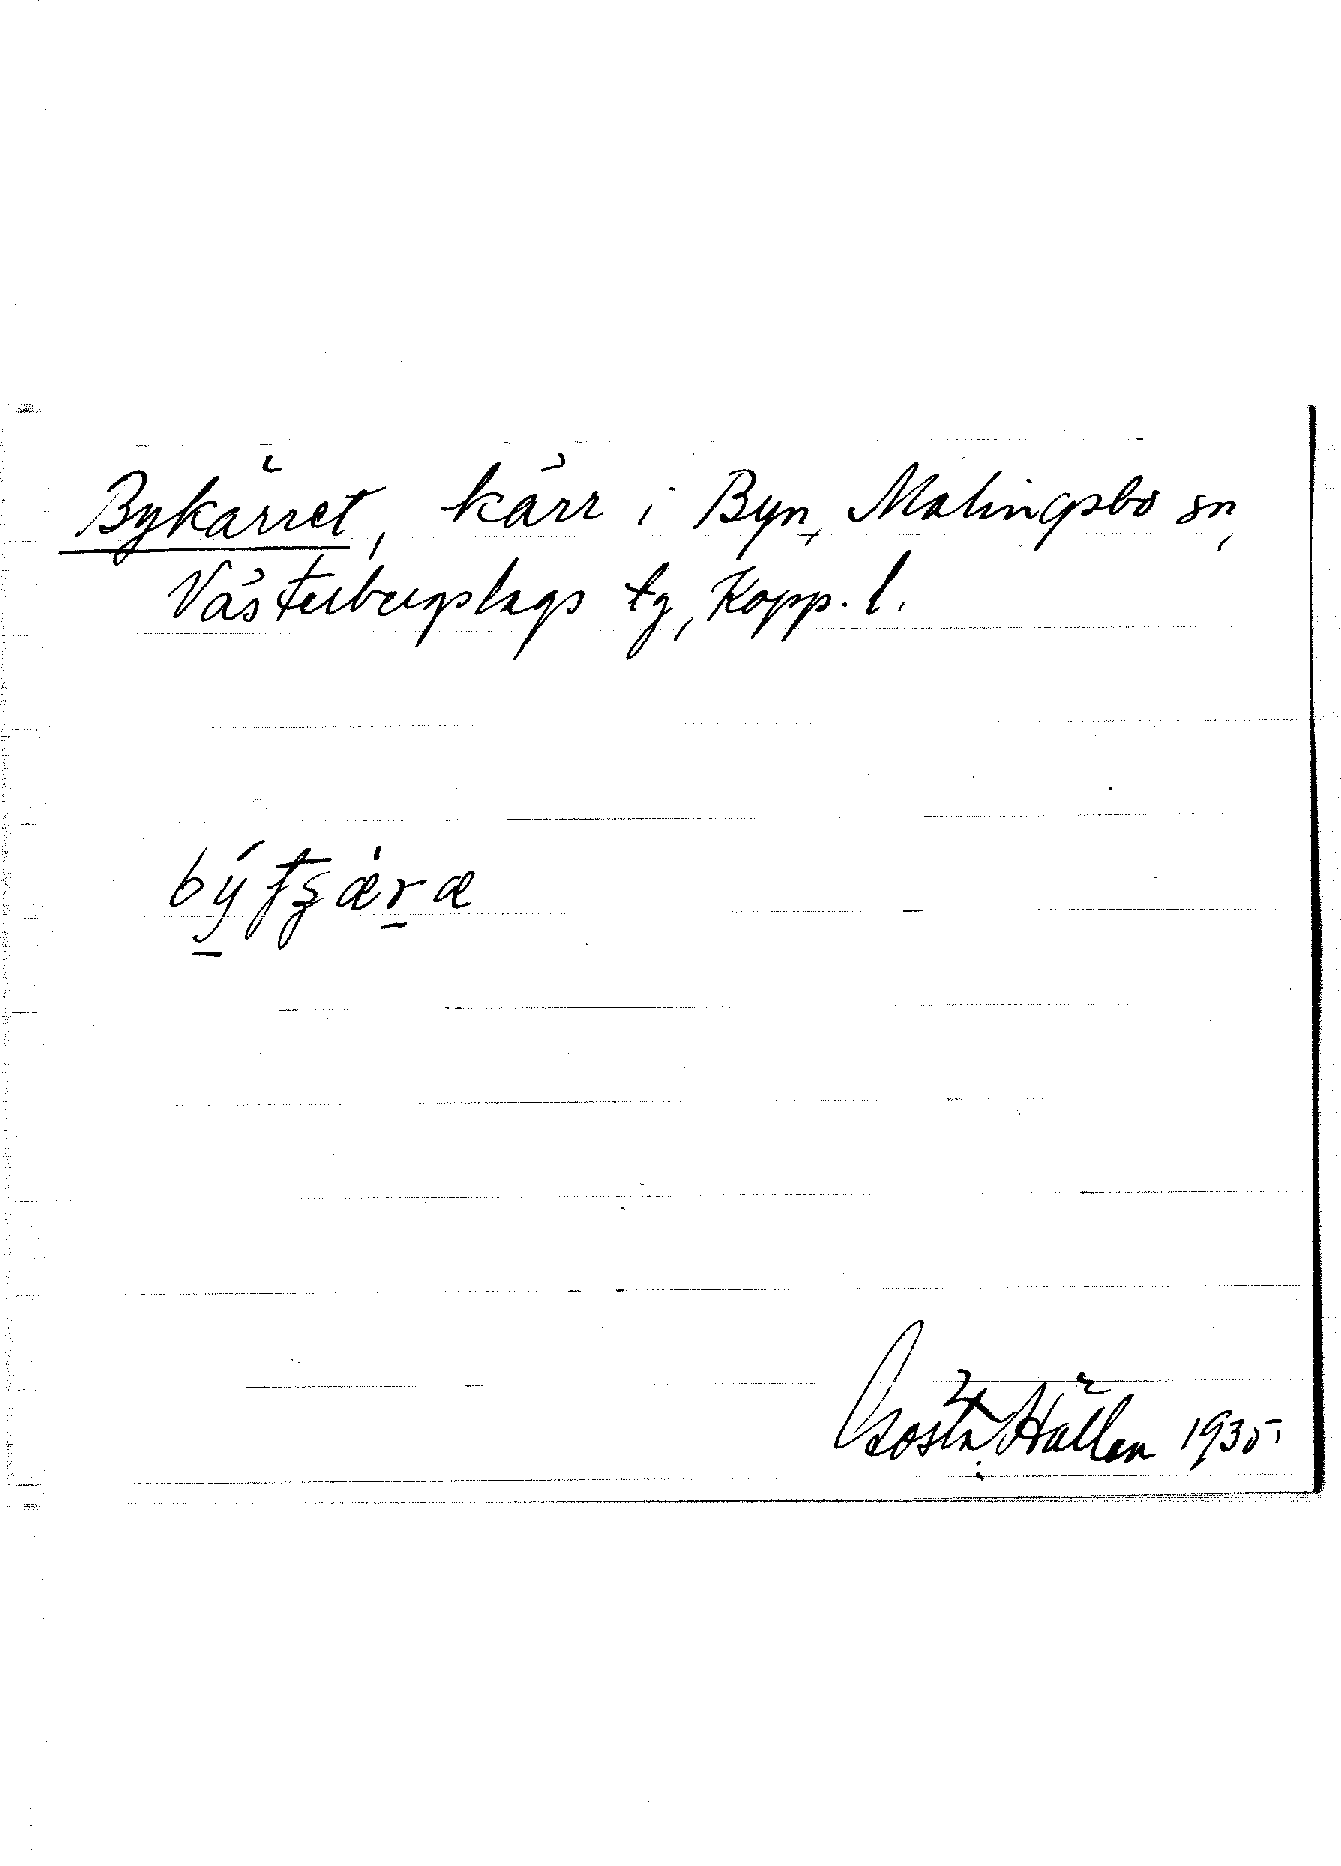 Bykärret, kärr i Byn, Malingsbo sn,
Västerbergslags tg, Kopp. l.
Gösta Hällen 1935